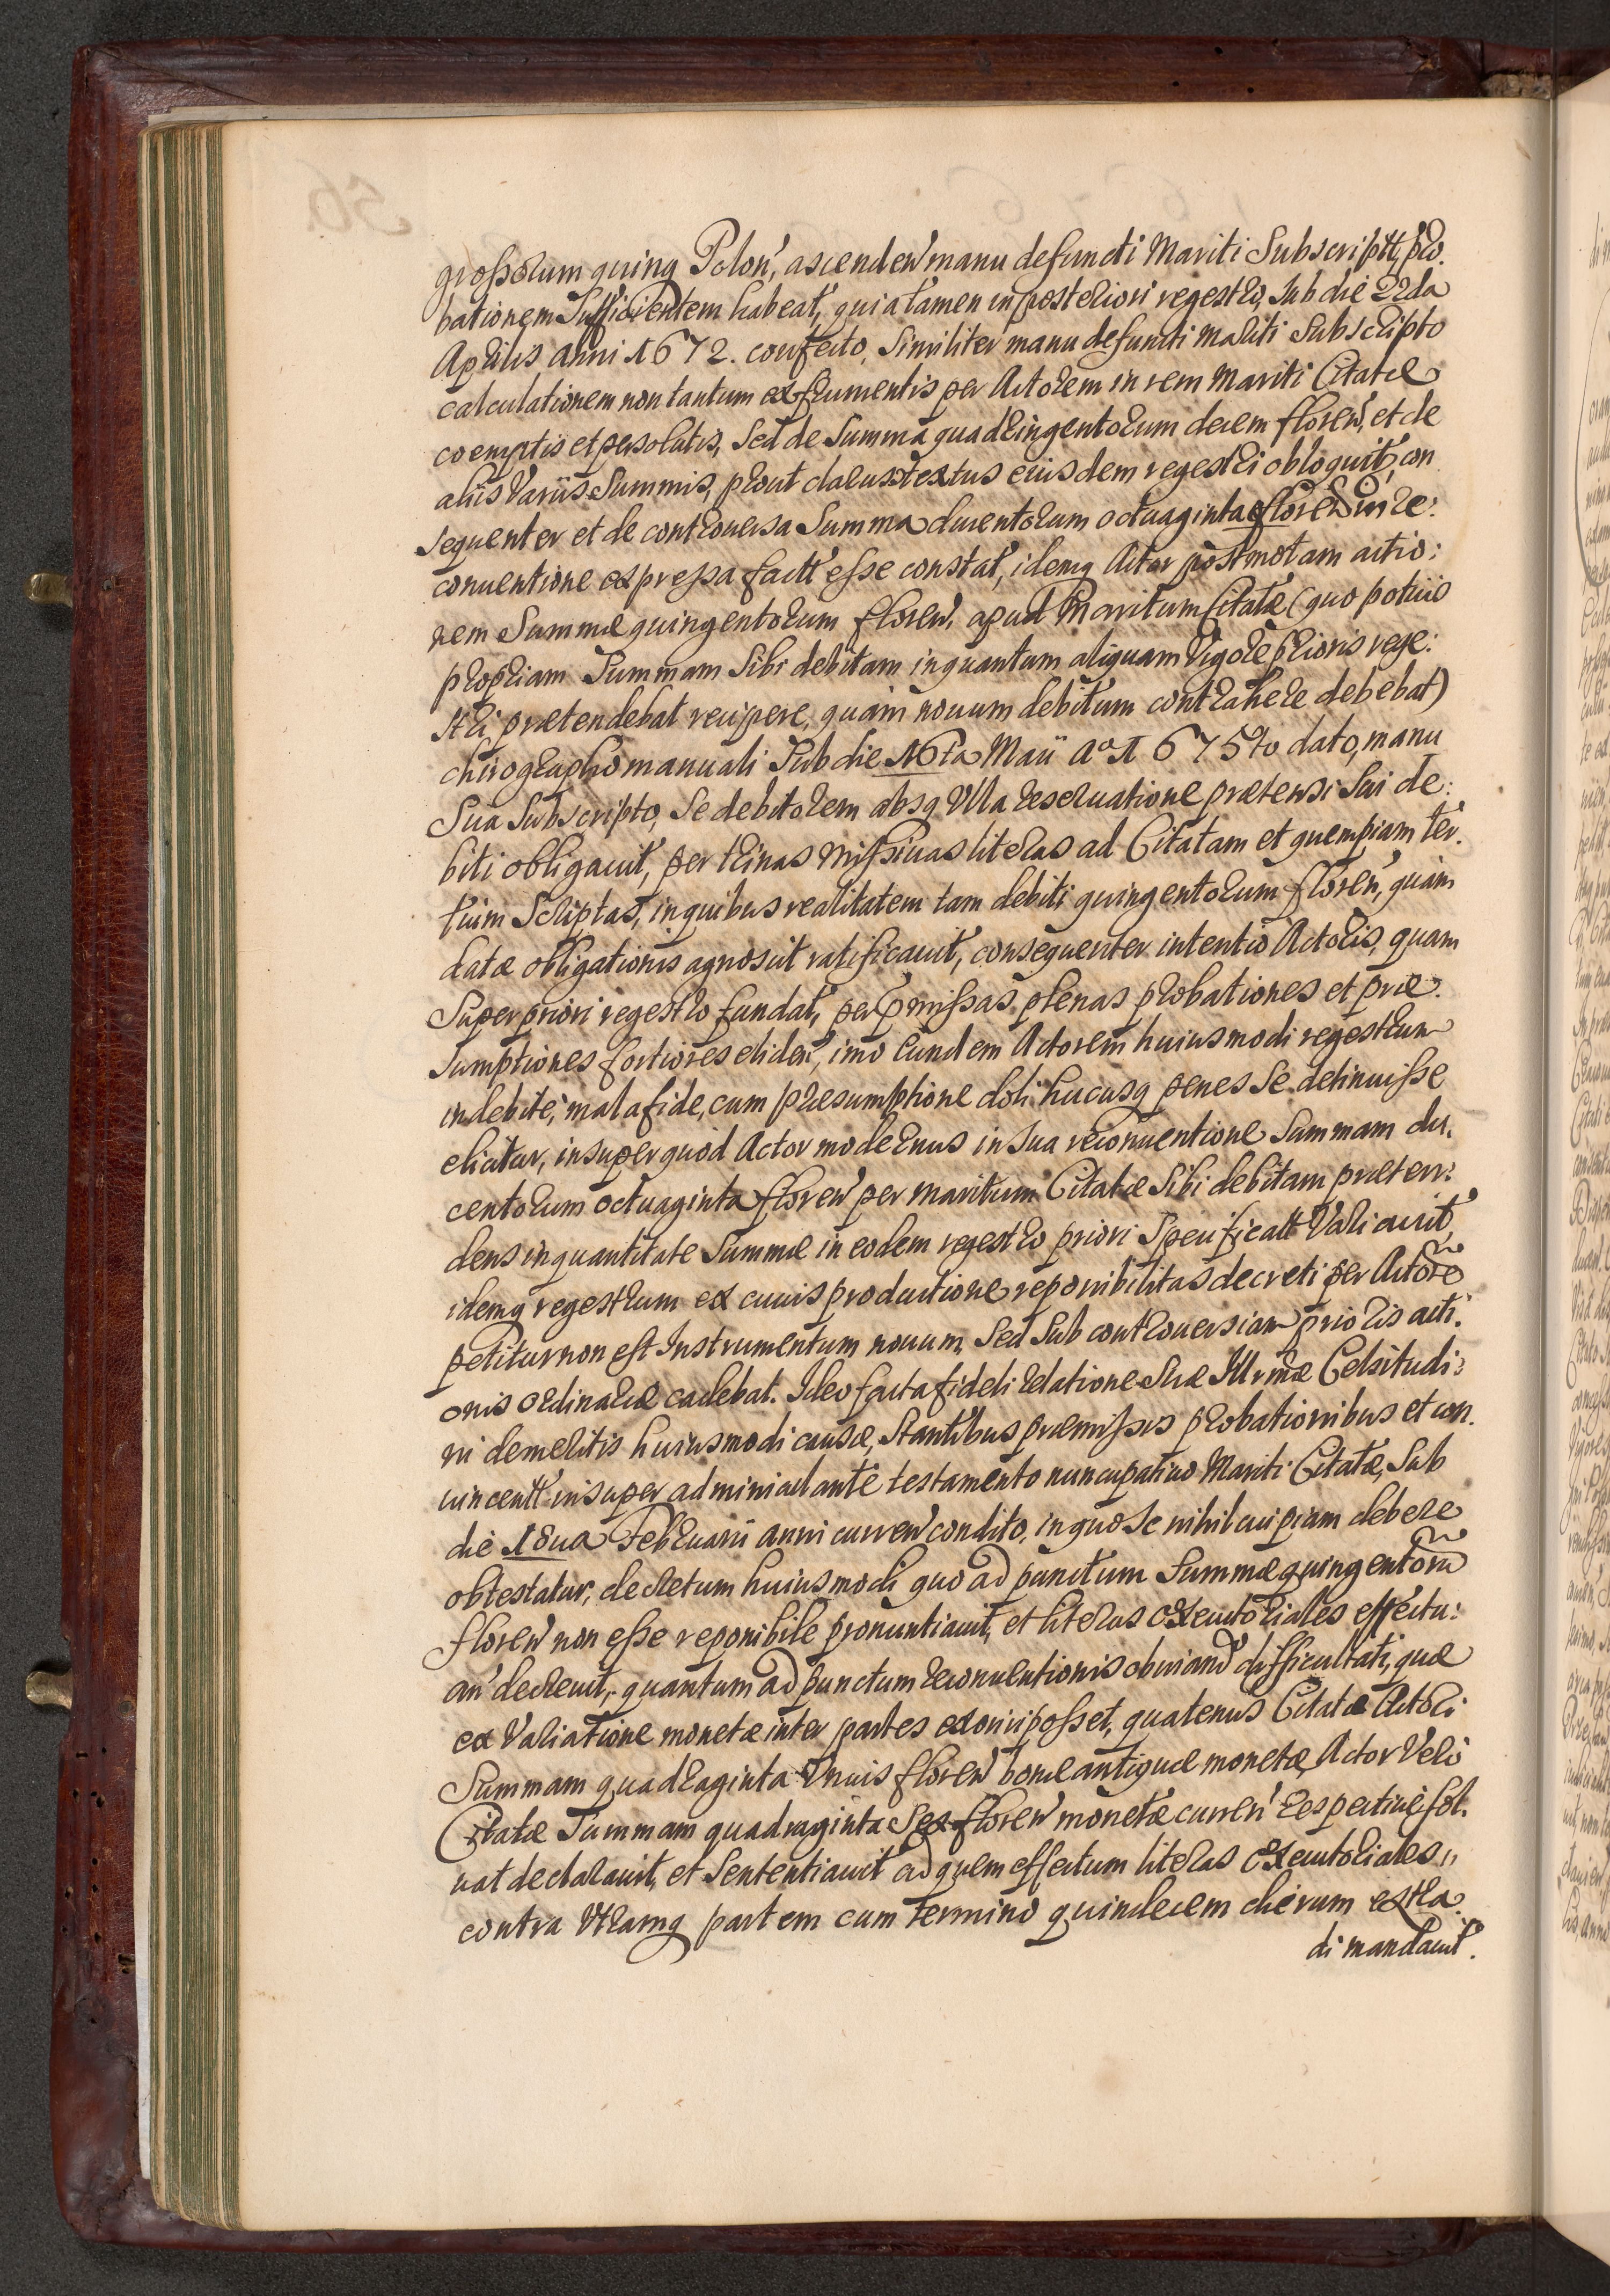 grossorum quinq Polon, ascenden manu defuncti Mariti Subscriptt, pro.
bationem Sufficientem habeat, quia tamen in posteriori regestro, Sub die 22da
Aprilis anni 1672. confecto, Similiter manu defuncti Mariti Subscripto
calculationem non tantum ex frumentis per Actorem in rem Mariti Citatæ
coemptis et persolutis, Sed de Summa quadringentorum decem floren, et de
aliis variis Summis, prout clarus textus eiusdem regestri obloquit, con
sequenter et de controversa Summa ducentorum octuaginta floren in re:
conventione expressa factt esse constat, idemq Actor post motam actio:
nem Summæ quingentorum floren, apud Maritum Citatæ (quo potuis
propriam Summam Sibi debitam inquantum aliquam vigore prioris rege:
stri prætendebat recipere, quàm novum debitum contrahere debebat)
chirographo manuali Sub die 16ta Maii Ao 1675to dato, manu
Sua Subscripto, Se debitorem absq Ulla reservatione prætensi Sui de:
biti obligavit, per trinas Missivas literas ad Citatam et quempiam ter.
tium Scriptas, in quibus realitatem tam debiti quingentorum floren, quàm
datæ obligationis agnoscit ratificavit, consequenter intentio Actoris, quam
Super priori regestro fundat, per pmissas plenas probationes et præ.
sumptiones fortiores eliden, imo Eundem Actorem huiusmodi regestrum
indebitè, mala fide, cum præsumptione doli hucusq penes Se detinuisse
elicitur, insuper quòd Actor modernus in Sua reconventione Summam du.
centorum octuaginta floren per Maritum Citatæ Sibi debitam præten:
dens in quantitate Summæ in eodem regestro priori Specificatt Variavit,
idemq regestrum ex cuius productione reponibilitas decreti per Actore
petitur non est Instrumentum novum, Sed Sub controversiam prioris acti.
onis ordinariæ cadebat. Ideo facta fideli relatione Suæ Illrmæ Celsitudi:
ni de meritis huiusmodi causæ, Stantibus præmissis probationibus et con.
vincentt insuper adminiculante testamento nuncupativo Mariti Citatæ, Sub
die 18va Februarii anni curren condito, in quo Se nihil cuipiam debere
obtestatur, decretum huiusmodi quo ad punctum Summæ quingentoru
floren non esse reponibile pronuntiavit, et literas Executoriales effectu:
an decrevit, quantum ad punctum reconventionis obviand difficultati, quæ
ex Variatione monetæ inter partes exoriri posset, quatenus Citata Actori
Summam quadraginta Unius floren bonæ antiquæ monetæ, Actor Verò
Citatæ Summam quadraginta Sex floren monetæ curren respectivè sol.
vat declaravit, et Sententiavit ad quem effectum literas Executoriales,,
contra Utramq partem cum termino quindecem dierum extra.
di mandavit.